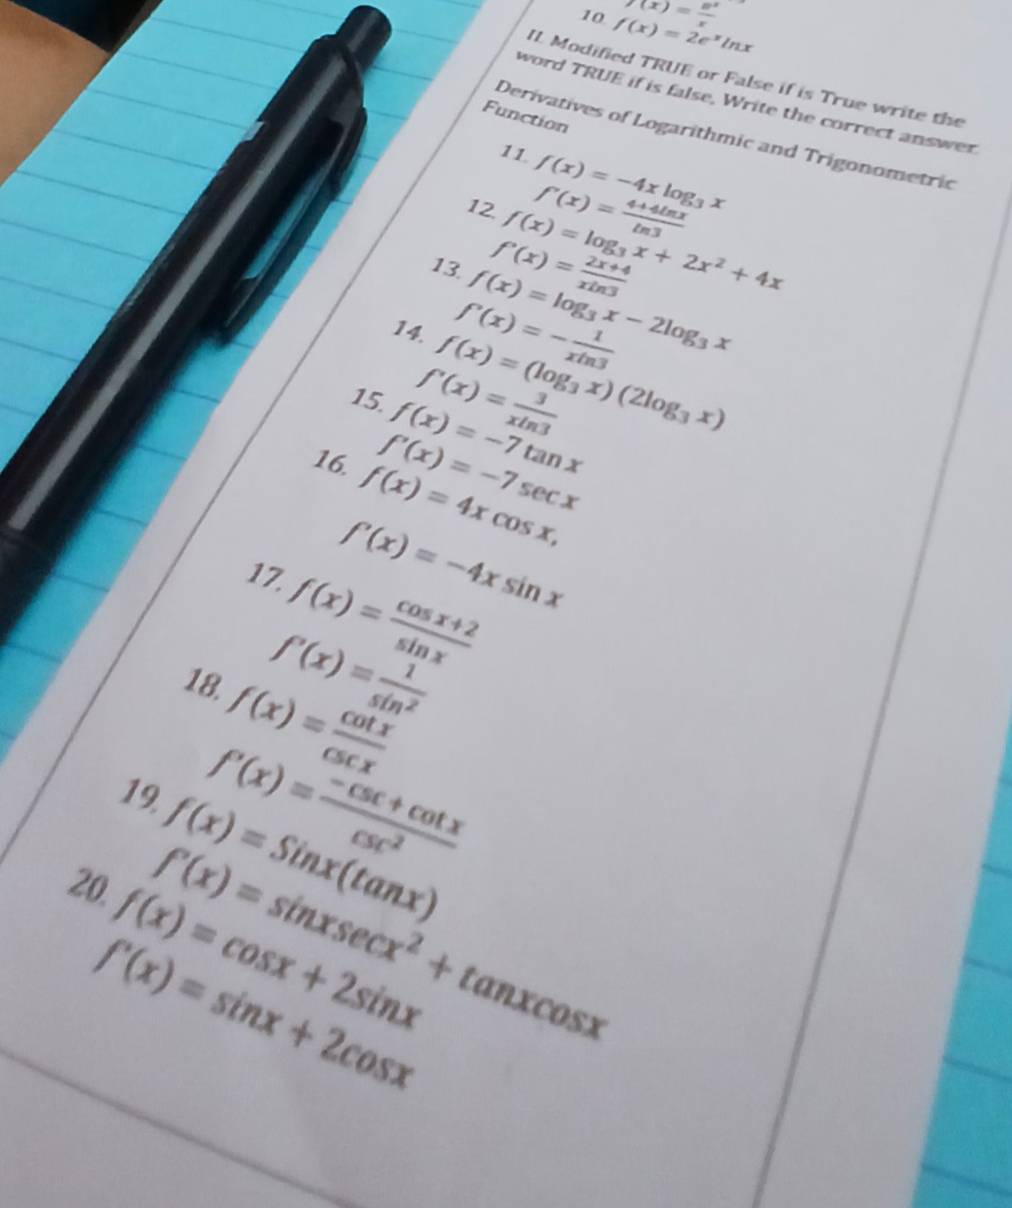 f(x) = e^x/x
10. f(x) = 2e^x lnx
II. Modified TRUE or False if is True write the
word TRUE if is false, Write the correct answer.
Derivatives of Logarithmic and Trigonometric
Function
11. f(x) = −4x log₃ x
f'(x) = (4+4lnx)/(ln3)
12. f(x) = log₃ x + 2x² + 4x
f'(x) = (2x+4)/(xln3)
13. f(x) = log₃ x − 2log₃ x
f'(x) = −1/(xln3)
14. f(x) = (log₃ x)(2log₃ x)
f'(x) = 3/(xln3)
15. f(x) = −7 tan x
f'(x) = −7 sec x
16. f(x) = 4x cos x,
f'(x) = −4x sin x
17. f(x) = (cos x+2)/(sin x)
f'(x) = 1/(sin²)
18. f(x) = (cot x)/(csc x)
f'(x) = (−csc + cot x)/(csc²)
19. f(x) = Sinx(tanx)
f'(x) = sinxsecx² + tanxcosx
20. f(x) = cosx + 2sinx
f'(x) = sinx + 2cosx